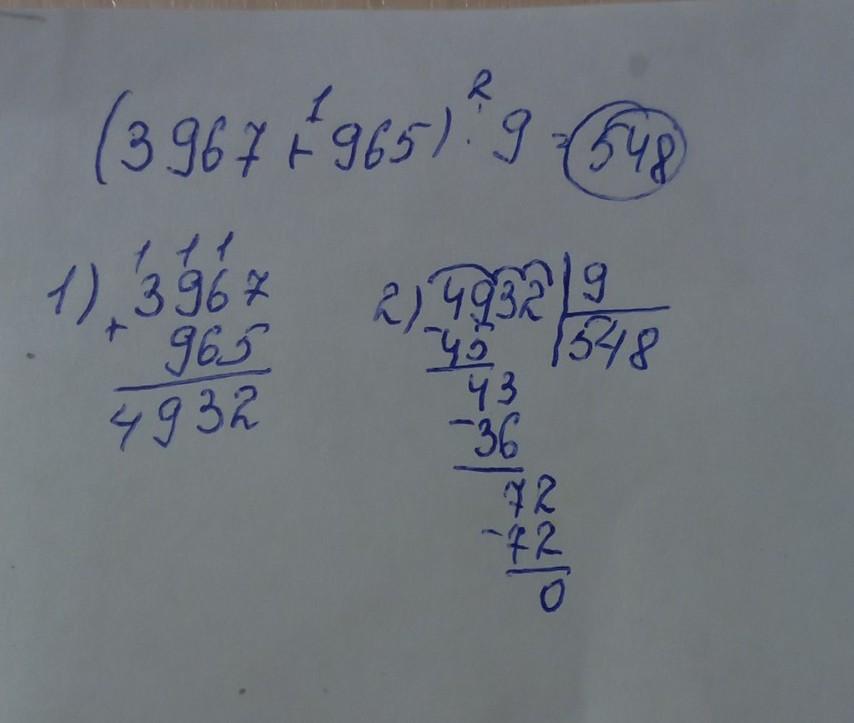 1 2
(3967 + 965) : 9 = 548
1) 1 1 1
+ 3967
965
4932
2) 4932 | 9
- 45 548
43
- 36
72
- 72
0